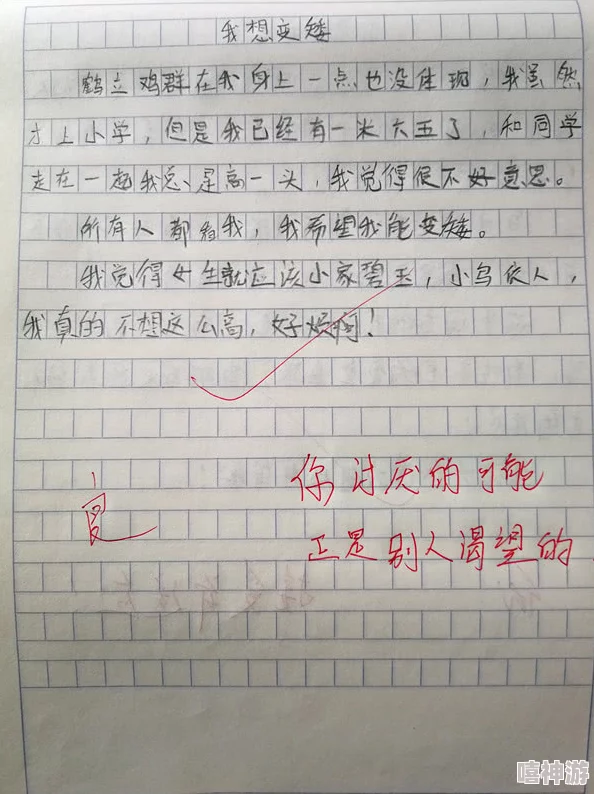 我想变矮
鹤立鸡群在我身上一点也没体现，我虽然
才上小学，但是我已经有一米六五了，和同学
走在一起我总是高一头，我觉得很不好意思。
所有人都看我，我希望我能变矮。
我觉得女生就应该小家碧玉，小鸟依人，
我真的不想这么高，好烦啊！
良
你讨厌的可能
正是别人渴望的
嘻神游